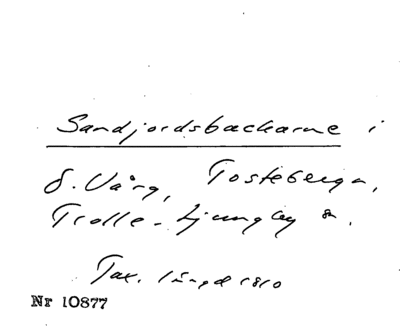 Sandjordsbackarne i
Ö. Vång, Tosteberga,
Trolle-Ljungby s.
Tax. längd 1810
Nr 10877